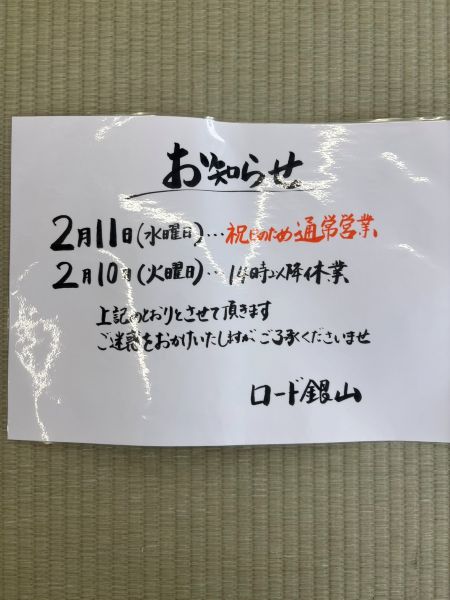 お知らせ
2月11日(水曜日)…祝日のため通常営業
2月10日(火曜日)…14時以降休業
上記のとおりとさせて頂きます
ご迷惑をおかけいたしますがご了承くださいませ
ロード銀山